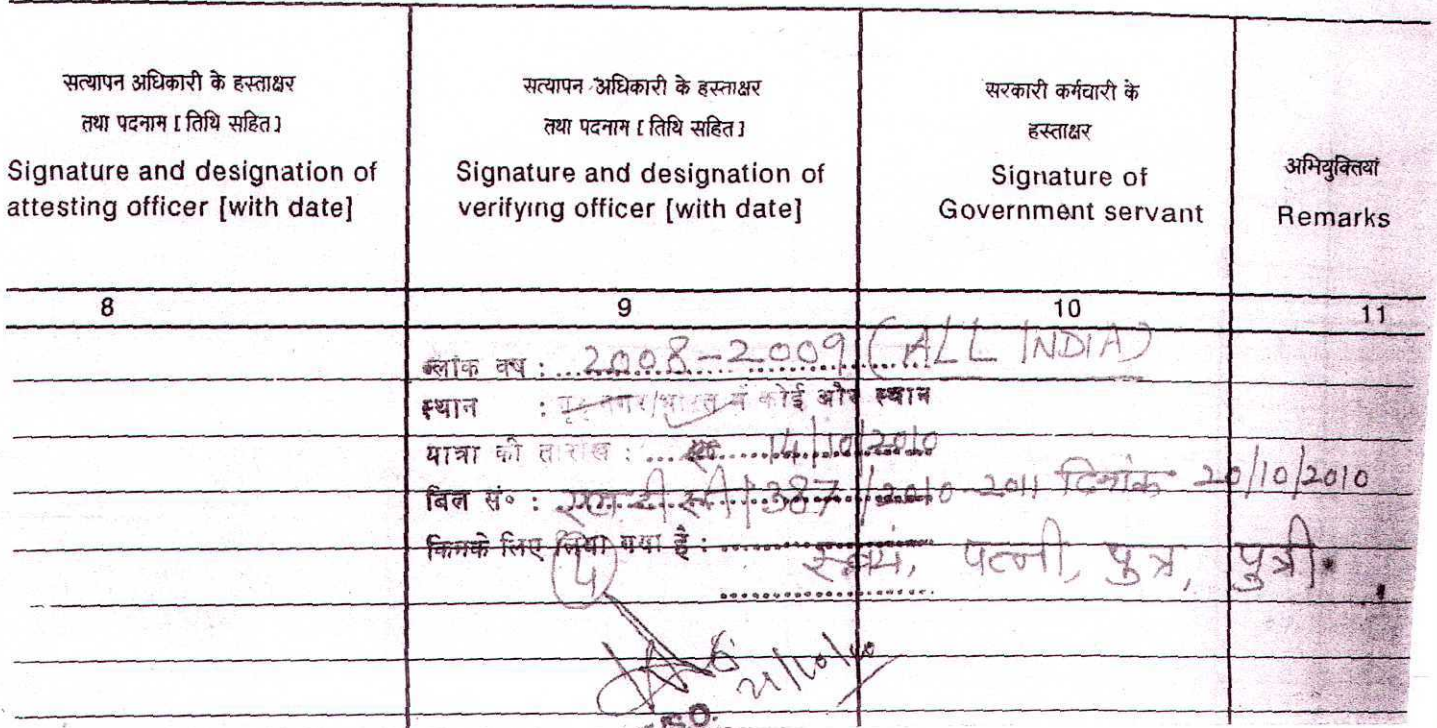 सत्यापन अधिकारी के हस्ताक्षर
तथा पदनाम [ तिथि सहित ]
Signature and designation of
attesting officer [with date]
सत्यापन अधिकारी के हस्ताक्षर
तथा पदनाम [ तिथि सहित ]
Signature and designation of
verifying officer [with date]
सरकारी कर्मचारी के
हस्ताक्षर
Signature of
Government servant
अभियुक्तियां
Remarks
8 9 10 11
ब्लॉक वर्ष : 2008-2009 (ALL INDIA)
स्थान : गृह नगर/भारत में कोई और स्थान
यात्रा की तारीख : 14/10/2010
बिल सं० : एल.टी.सी/387/2010-2011 दिनांक 20/10/2010
किनके लिए लिया गया है : स्वयं, पत्नी, पुत्र, पुत्री.
21/10/10